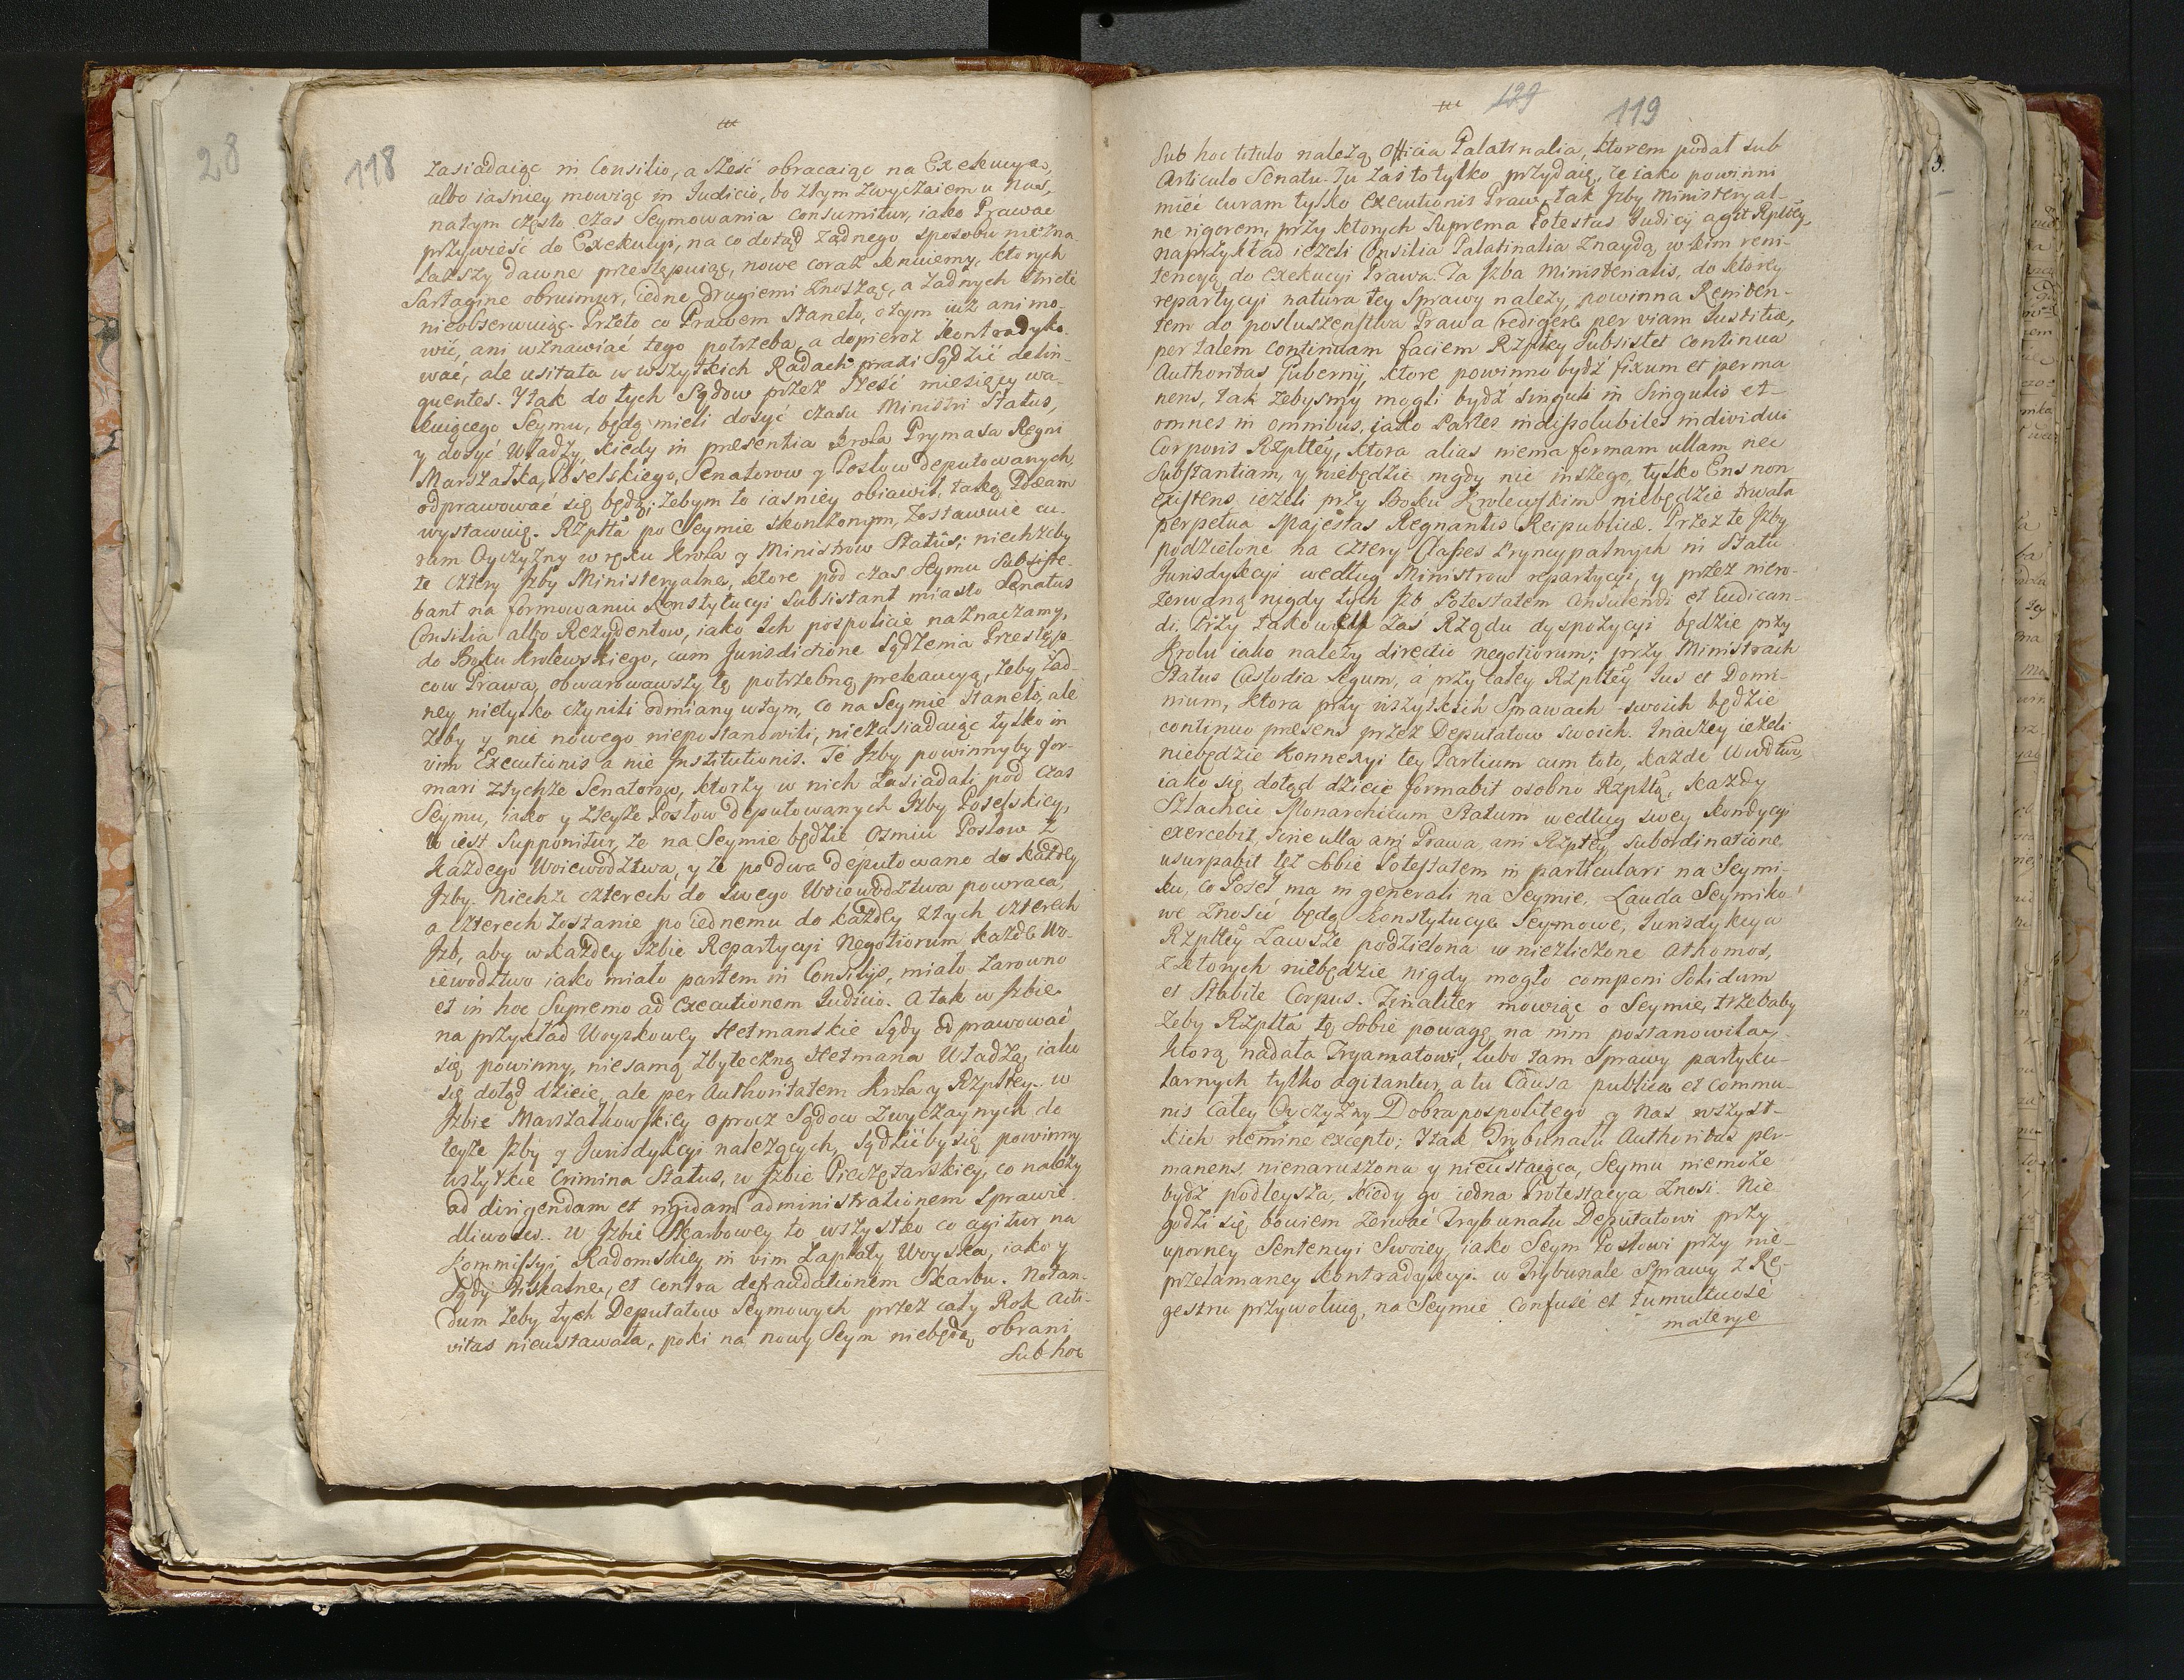 28
118
zasiadaiąc in Consilio, a sześć obracaiąc na Exekucye,
albo iaśniey mowiąc in Judicio, bo złym zwyczaiem u nas,
natym często czas Seymowania consumitur, iako Prawae
przywieść do Exekucyi, na co dotąd żadnego sposobu niezna-
lazszy dawne przestępuiąc, nowe coraz knuiemy, ktorych
Sartagine obruimur, iedne drugiemi znosząc, a żadnych stricte
nieobserwuiąc. Przeto co Prawem stanęło, otym iuż ani mo-
wić, ani wznawiać tego potrzeba, a dopieroż kontradyko-
wać, ale usitata w wszytkich Radach praxi Sądzić delin-
quentes. Itak do tych Sądow przez sześć miesięcy wa-
kuiącego Seymu, będą mieli dosyć czasu Ministri Status,
y dosyć władzy, kiedy in presentia krola Prymasa Regni
Marszałka Poselskiego, Senatorow y Posłow deputowanych,
odprawować się będą; żebym to iaśniey obiawił, taką Ideam
wystawuię. Rzplta po Seymie skonczonym, zostawuie cu-
ram Oyczyzny w ręku Krola y Ministrow Statûs; niechżeby
te cztery Izby Ministeryalne, ktore pod czas Seymu subsiste-
bant na formowaniu Konstytucyi subsistant miasto Senatus
Consilia albo Rezydentow, iako Ich pospolicie naznaczamy,
do Boku Krolewskiego, cum Jurisdictione sądzenia Przestęp-
cow Prawa, obwarowawszy tę potrzebną prekaucyą, żeby żad-
ney nietylko czynili odmiany wtym, co na Seymie stanęło, ale
żeby y nic nowego niepostanowili, niezasiadaiąc tylko in
vim Executionis a nie Institutionis. Te Izby powinnyby for-
mari ztychże Senatorow, ktorzy w nich zasiadali pod czas
Seymu, iako y zteyże Posłow deputowanych Izby Poselskiey,
to iest supponitur, że na Seymie będzie Osmiu Posłow z
każdego Woiewodztwa, y że po dwa deputowano do każdey
Izby. Niechże czterech do swego Woiewodztwa powraca,
a czterech zostanie po iednemu do każdey ztych czterech
Izb, aby wkażdey Izbie Repartycyi Negotiorum każde Wo-
iewodztwo iako miało partem in Consilijs, miało zarowno
et in hoc Supremo ad executionem Judicio. A tak w Izbie
na przykład Woyskowey Hetmanskie Sądy odprawować
się powinny, niesamą zbyteczną Hetmana Władzą, iako
się dotąd dzieie, ale per Authoritatem Krola y Rzpltey. w
Izbie Marszałkowskiey oprocz Sądow zwyczaynych do
teyże Izby y Jurisdykcyi należących, Sądzićby się powinny
wszytkie Crimina Status, w Izbie Pieczętarskiey, co należy
ad dirigendam et rigidam administrationem sprawie-
dliwości. w Izbie Skarbowey to wszystko co agitur na
Kommissyi Radomskiey in vim zapłaty Woyska, iako y
Sądy Fiskalne, et contra defraudationem Skarbu. Notan-
dum żeby tych Deputatow Seymowych przez cały Rok Acti-
vitas nieustawała, poki na nowy Seym niebędą obrani
Sub hoc
129
119
Sub hoc titulo należą Officia Palatinalia, ktorem podał sub
Articulo Senatu. Tu zaś to tylko przydaię, że iako powinni
mieć curam tylko executionis Praw, tak Izby Ministeryal-
ne rigorem, przy ktorych Suprema Potestas Judicij agit Rpltey,
naprzykład ieżeli Consilia Palatinalia znaydą w kim reni-
tencyą do exekucyi Prawa. Ta Izba Ministerialis, do ktorey
repartycyi natura tey Sprawy należy, powinna Reniten-
tem do posłuszeństwa Prawa redigere per viam Justitiæ,
per talem continuam faciem Rzpltey Subsistet continua
Authoritas Gubernij, ktore powinno bydź fixum et perma
nens, tak żebysmy mogli bydź singuli in Singulis et
omnes in omnibus, iako Partes indissolubiles individui
Corporis Rzpltey, ktora alias niema formam ullam nec
Substantiam, y niebędzie nigdy nic inszego, tylko Ens non
existens, ieżeli przy Boku Krolewskim niebędzie trwała
perpetua Majestas Regnantis Reipublicæ. Przez te Izby
podzielone na cztery Classes Pryncypalnych in Statu
Jurisdykcyi według Ministrow repartycyi, y przez niero-
zerwaną nigdy tych Izb Potestatem Consulendi et Judican-
di. Przy takowey zaś Rządu dyspozycyi będzie przy
Krolu iako należy directio negotiorum; przy Ministrach
Status Custodia Legum, á przy całey Rzpltey Jus et Domi-
nium, ktora przy wszystkich Sprawach swoich będzie
continuo præsens przez Deputatow swoich. Inaczey ieżeli
niebędzie Konnexyi tey Partium cum toto, każde Wwdtwo,
iako się dotąd dzieie formabit osobno Rzpltą, każdy
Szlachcic Monarchicum Statum według swey kondycyi
exercebit, sine ulla ani Prawa, ani Rzpltey, subordinatione,
usurpabit też sobie Potestatem in particulari na Seymi-
ku, co Poseł ma in generali na Seymie. Lauda Seymiko-
we znosić będą Konstytucye Seymowe, Jurisdykcya
Rzpltey zawsze podzielona w niezliczone Athomos,
z ktorych niebędzie nigdy mogło componi Solidum
et Stabile Corpus. Finaliter mowiąc o Seymie, trzebaby
żeby Rzplta tę sobie powagę na nim postanowiła,
ktorą nadała Tryamatowi, lubo tam Sprawy partyku-
larnych tylko agitantur, a tu Causa publica et commu-
nis całey Oyczyzny Dobra pospolitego y Nas wszyst-
kich nemine excepto; Itak Trybunału Authoritas per-
manens, nienaruszona y nieustaiąca, Seymu niemoże
bydź podleysza, kiedy go iedna Protestacya znosi. Nie
godzi się bowiem zerwać Trybunału Deputatowi przy
uporney Sentencyi Swoiey, iako Seym Posłowi przy nie-
przełamaney Kontradykcyi. w Trybunale Sprawy z Re-
gestru przywołuią, na Seymie confusè et tumultuosè
materye